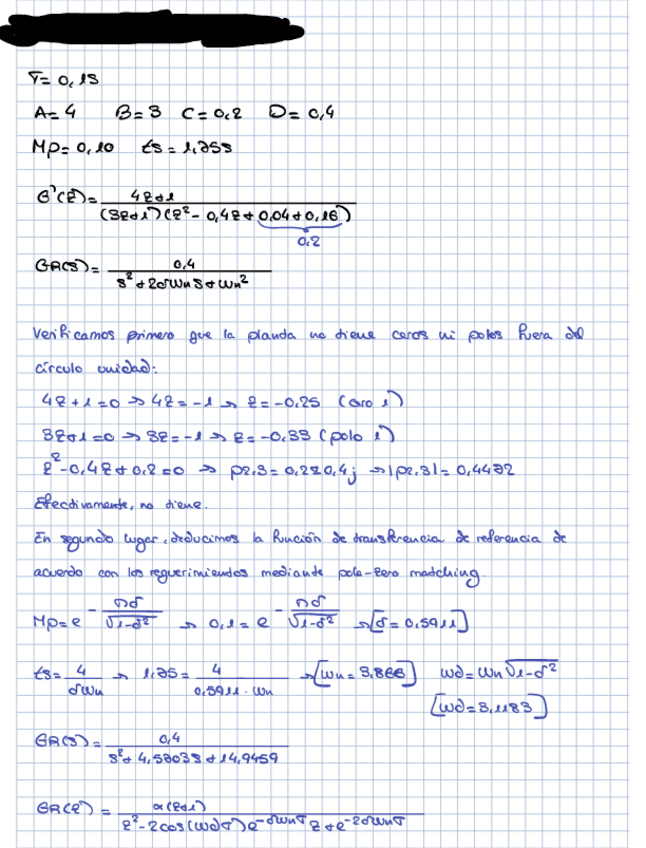 T= 0,1s
A= 4 B= 3 C= 0,2 D= 0,4
Mp= 0,10 ts= 1,75s
G'(z)= 4z+1 / (3z+1)(z² - 0,4z + 0,04+0,16)
0,2
GR(s)= 0,4 / s²+2δωns+ωn²
Verificamos primero que la planta no tiene ceros ni polos fuera del
círculo unidad:
4z+1=0 → 4z=-1 → z=-0,25 (cero 1)
3z+1=0 → 3z=-1 → z=-0,33 (polo 1)
z²-0,4z+0,2=0 → p2,3=0,2±0,4j → |p2,3|=0,4472
Efectivamente, no tiene.
En segundo lugar, deducimos la función de transferencia de referencia de
acuerdo con los requerimientos mediante pole-zero matching.
Mp=e^(-πδ/√1-δ²) → 0,1=e^(-πδ/√1-δ²) → [δ=0,5911]
ts= 4/δωn → 1,75= 4/0,5911·ωn → [ωn=3,866] ωd=ωn√1-δ²
[ωd=3,1183]
GR(s)= 0,4 / s²+4,5703s+14,9459
GR(z)= α(z+1) / z²-2cos(ωdT)e^(-δωnT)z+e^(-2δωnT)